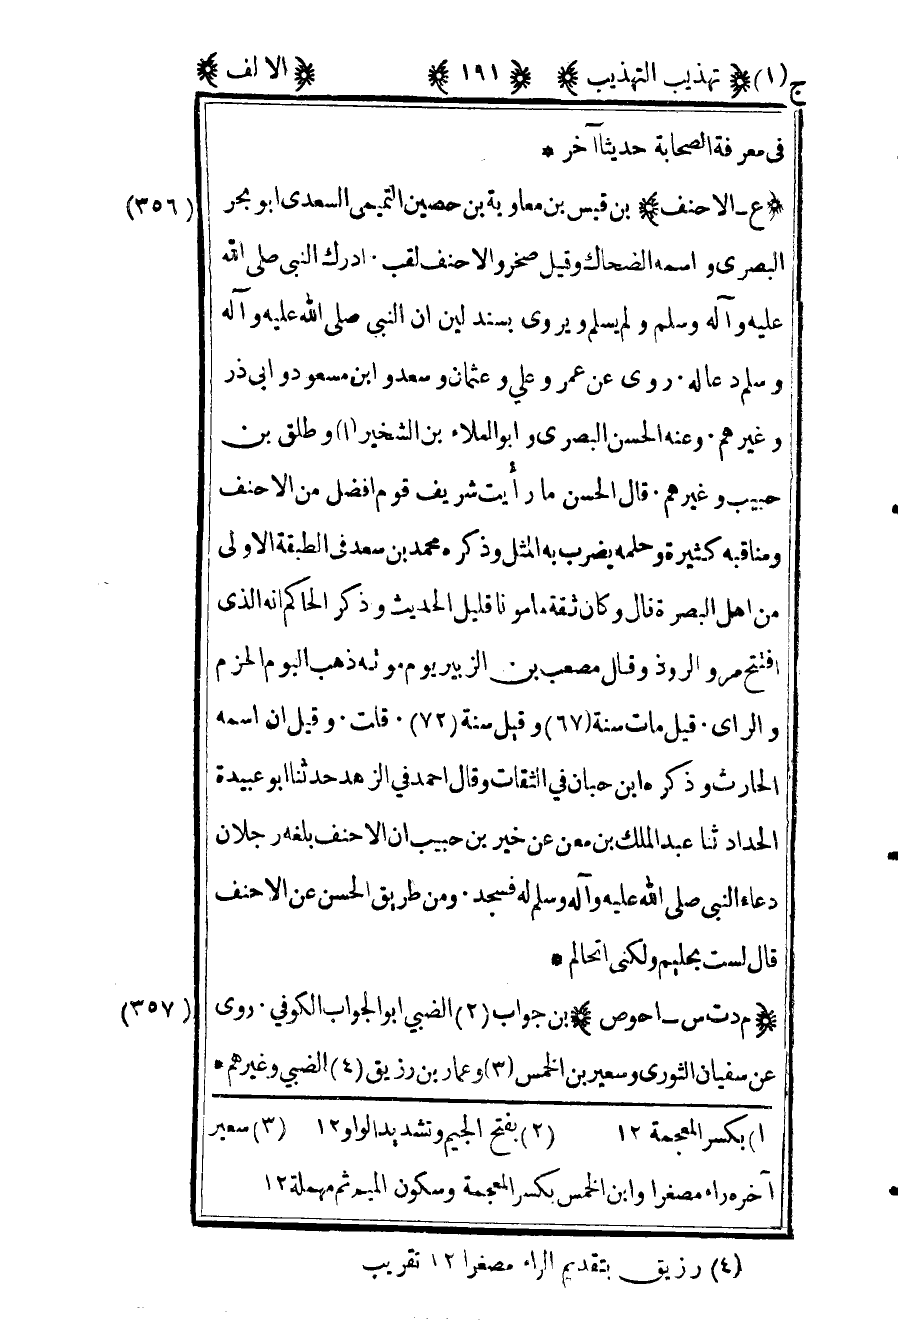 ج (١) تهذيب التهذيب ١٩١ الالف
فى معرفة الصحابة حديثا آخر *
(٣٥٦) ﴿ع ـ الاحنف﴾ بن قيس بن معاوية بن حصين التميمى السعدى ابو بحر
البصرى و اسمه الضحاك وقيل صخر والاحنف لقب · ادرك النبى صلى الله
عليه و آله وسلم و لم يسلم و يروى بسند لين ان النبي صلى الله عليه و آله
و سلم دعا له · روى عن عمر و علي و عثمان و سعد و ابن مسعود و ابى ذر
و غيرهم · وعنه الحسن البصرى و ابو العلاء بن الشخير (١) و طلق بن
حبيب و غيرهم · قال الحسن ما رأيت شريف قوم افضل من الاحنف
ومناقبه كثيرة و حلمه يضرب به المثل وذكره محمد بن سعد فى الطبقة الاولى
من اهل البصرة قال و كان ثقة مامونا قليل الحديث و ذكر الحاكم انه الذى
افتتح مرو الروذ وقال مصعب بن الزبير يوم موته ذهب اليوم الحزم
و الراى · قيل مات سنة (٦٧) و قيل سنة (٧٢) · قلت · و قيل ان اسمه
الحارث و ذكره ابن حبان في الثقات وقال احمد في الزهد حدثنا ابو عبيدة
الحداد ثنا عبد الملك بن معن عن خير بن حبيب ان الاحنف بلغه رجلان
دعاء النبى صلى الله عليه و آله وسلم له فسجد · ومن طريق الحسن عن الاحنف
قال لست بحليم ولكنى اتحالم *
(٣٥٧) ﴿م د ت س ـ احوص﴾ بن جواب (٢) الضبي ابو الجواب الكوفي · روى
عن سفيان الثورى و سعير بن الخمس (٣) و عمار بن رزيق (٤) الضبي و غيرهم *
١) بكسر المعجمة ١٢ (٢) بفتح الجيم و تشديد الواو ١٢ (٣) سعير
آخره راء مصغرا وابن الخمس بكسر المعجمة وسكون الميم ثم مهملة ١٢
(٤) رزيق بتقديم الراء مصغرا ١٢ تقريب